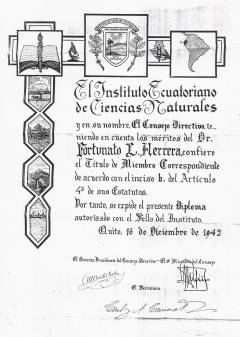 El Instituto Ecuatoriano
de Ciencias Naturales
y en su nombre, El Consejo Directivo, te-
niendo en cuenta los méritos del Dr.
Fortunato L. Herrera, confiere
el Título de Miembro Correspondiente
de acuerdo con el inciso b. del Artículo
4º de sus Estatutos.
Por tanto, se expide el presente Diploma
autorizado con el Sello del Instituto.
Quito, 16 de Diciembre de 1942
El Director, Presidente del Consejo Directivo - El
del Consejo
El Secretario